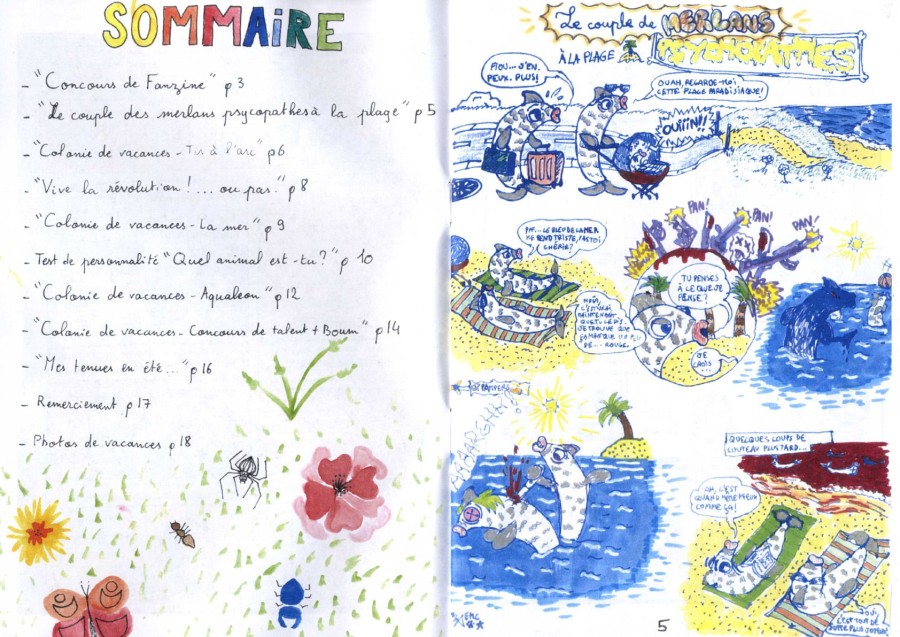 SOMMAIRE
- "Concours de Fanzine" p 3
- "Le couple des merlans psycopathes à la plage" p 5
- "Colonie de vacances - Tir à l'arc" p 6
- "Vive la révolution ! ... ou pas." p 8
- "Colonie de vacances - La mer" p 9
- Test de personnalité "Quel animal est-tu ?" p 10
- "Colonie de vacances - Aqualeon" p 12
- "Colonie de vacances - Concours de talent + Boum" p 14
- "Mes tenues en été..." p 16
- Remerciement p 17
- Photos de vacances p 18
Le couple de MERLANS
PSYCHOPATHES
À LA PLAGE
PIOU... J'EN
PEUX PLUS!
OUAH, REGARDE-MOI
CETTE PLAGE PARADISIAQUE!
OUIIIN!!
PFF... LE BLEU DE LA MER
ME REND TRISTE, PAS TOI
CHÉRIE?
MAIS,
MAINTENANT
QUE TU LE DIS
JE TROUVE QUE
ÇA MANQUE UN PEU
DE... ROUGE
PAN!
PAN!
PAN!
TU PENSES
À CE QUE JE
PENSE?
JE
CROIS...
AAAARGHH!
QUELQUES COUPS DE
COUTEAU PLUS TARD...
AH, C'EST
QUAND MÊME MIEUX
COMME ÇA!
OUI,
C'EST TOUT DE
SUITE PLUS JOYEUX!
5